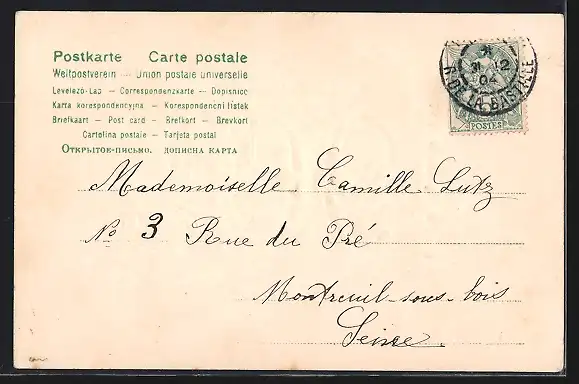 Postkarte Carte postale
Weltpostverein — Union postale universelle
Levelező-Lap — Correspondenzkarte — Dopisnice
Karta korespondencyjna — Korespondenční lístek
Briefkaart — Post card — Brefkort — Brevkort
Cartolina postale — Tarjeta postal
Открытое-письмо. дописна карта
31 12
04
R. DE LA BASTILLE
POSTES
Mademoiselle Camille Lutz
No 3 Rue du Pré
Montreuil-sous-bois
Seine.